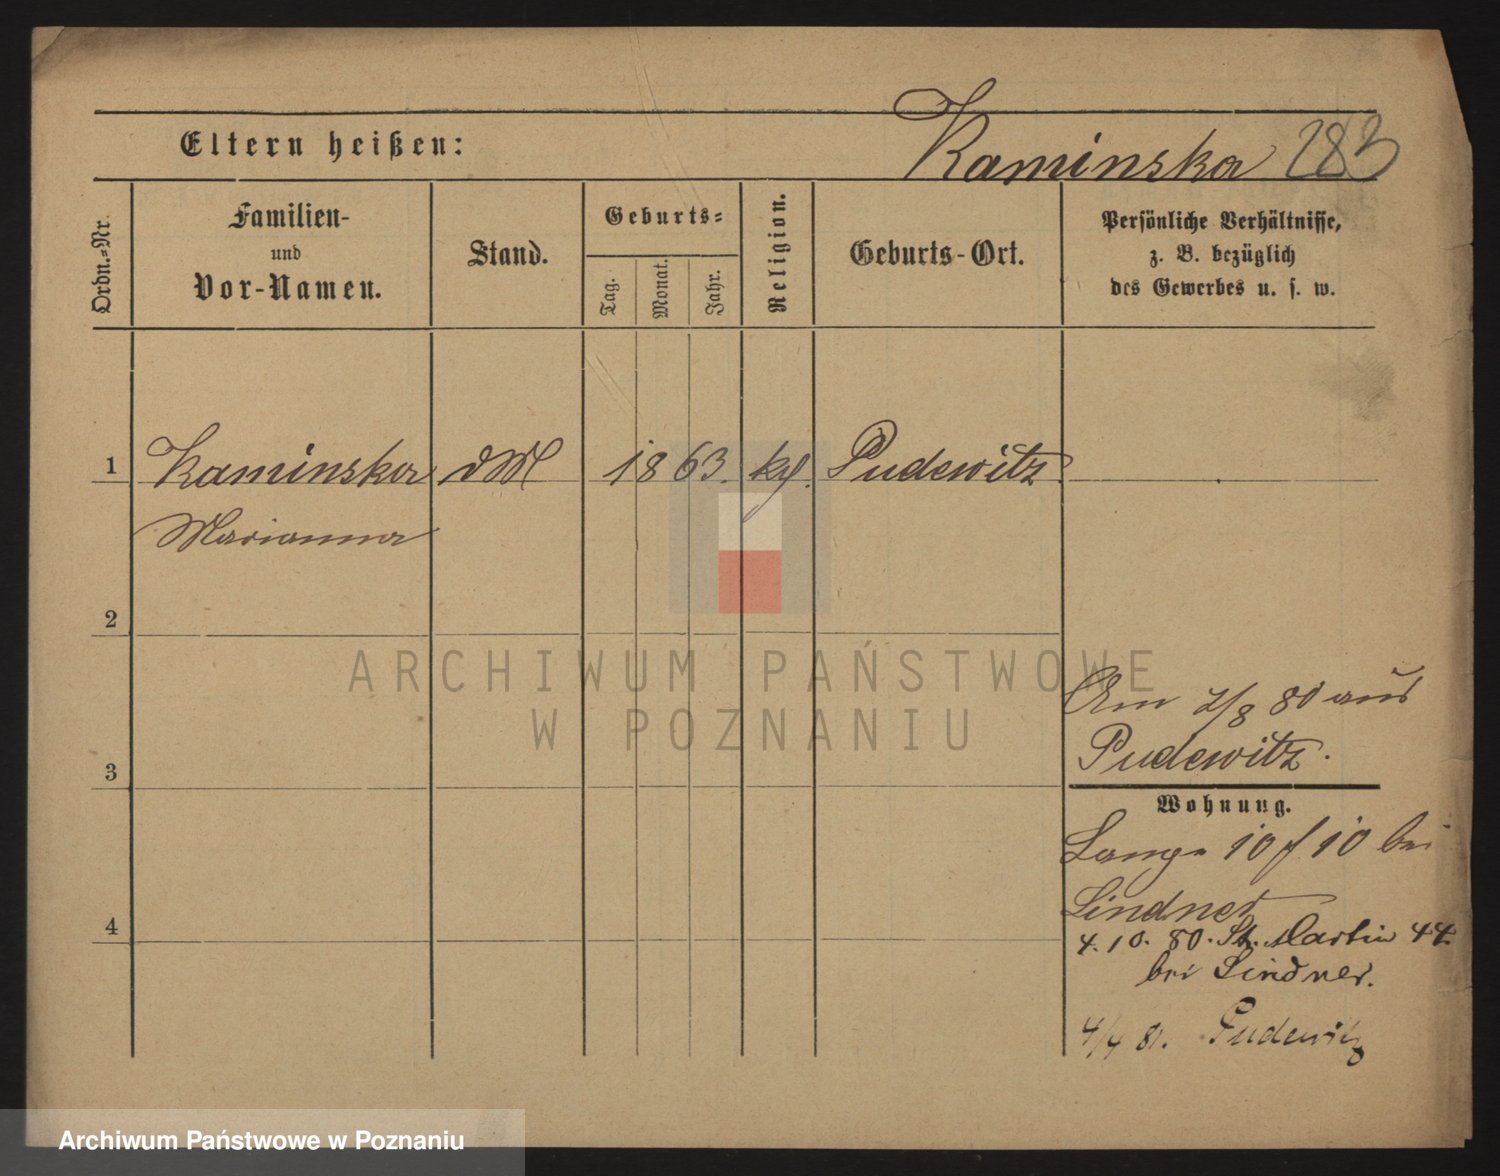 Eltern heißen:
Kaminska 283
Ordn.-Nr.
Familien-
und
Vor-Namen.
Stand.
Geburts-
Tag.
Monat.
Jahr.
Religion.
Geburts-Ort.
Persönliche Verhältnisse,
z. B. bezüglich
des Gewerbes u. s. w.
1 Kaminska dM 1863. kt. Pudewitz
Marianna
2
3
4
Am 2/8 80 aus
Pudewitz.
Wohnung.
Lange 10 f 10 bei
Lindner
4.10.80. St. Martin 44.
bei Lindner.
4/4 81. Pudewitz
ARCHIWUM PAŃSTWOWE
W POZNANIU
Archiwum Państwowe w Poznaniu